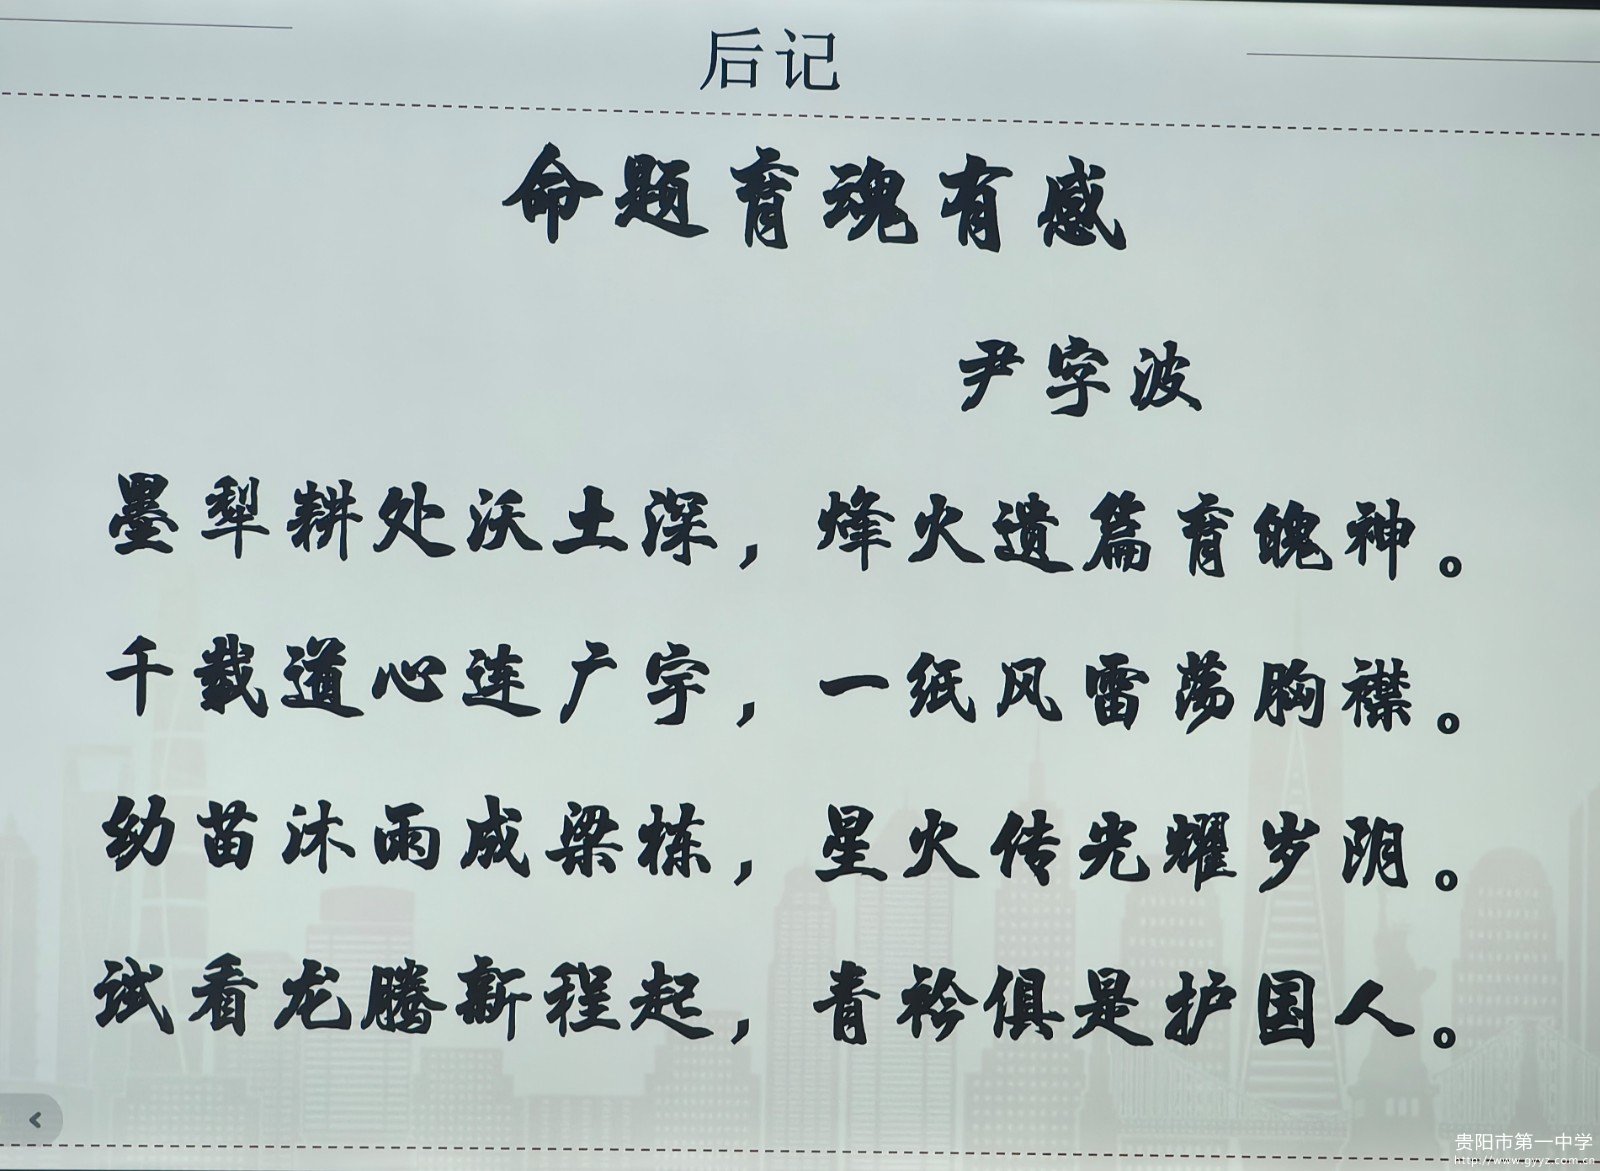 后记
命题育魂有感
尹字波
墨犁耕处沃土深，烽火遗篇育魄神。
千载道心连广宇，一纸风雷荡胸襟。
幼苗沐雨成梁栋，星火传光耀岁阴。
试看龙腾新程起，青衿俱是护国人。
贵阳市第一中学
http://www.gyyz.com.cn